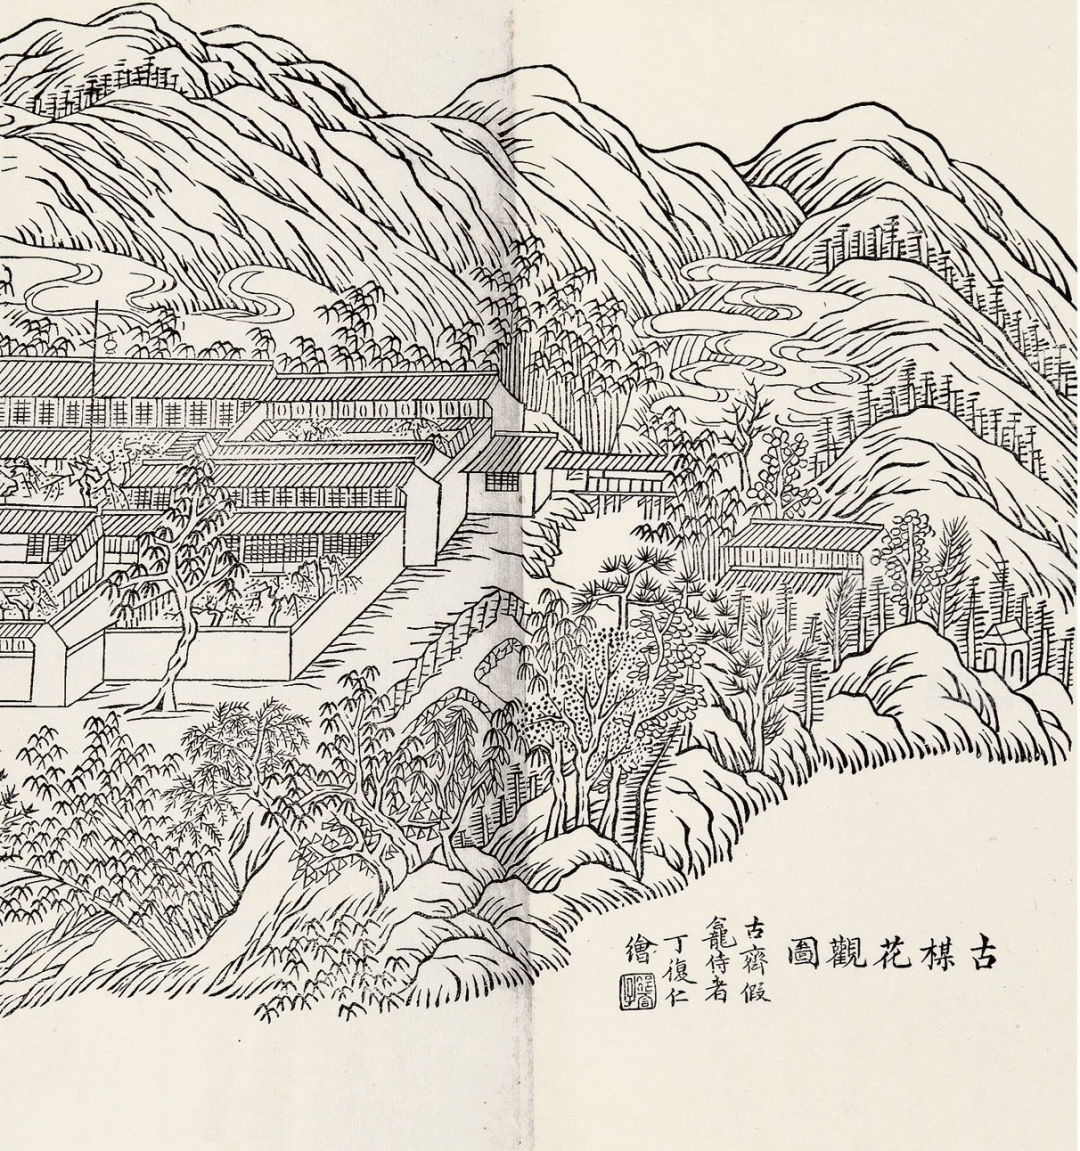 古楳花觀圖
古齊假
龕侍者
丁復仁
繪